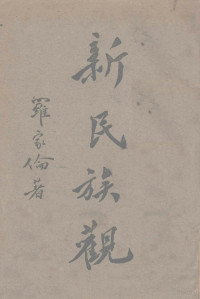 新民族觀
羅家倫著